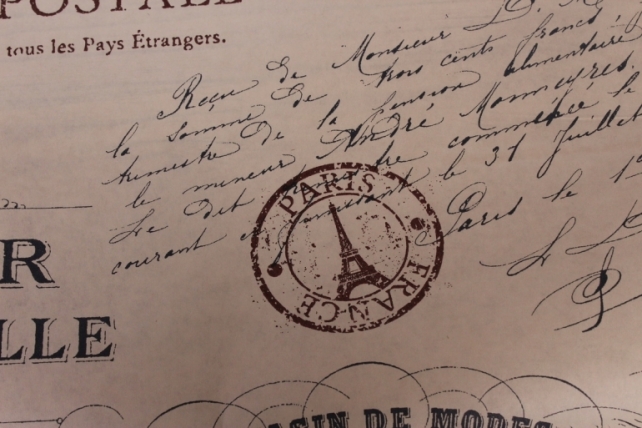 POSTALE
tous les Pays Étrangers.
Reçu de Monsieur D. M
la somme de trois cents francs
trimestre de la pension alimentaire
le mineur André Monneyres.
Le dit tre commencé le
courant le 31 Juillet
Paris le 1
PARIS
FRANCE
R
LLE
ASIN DE MODES